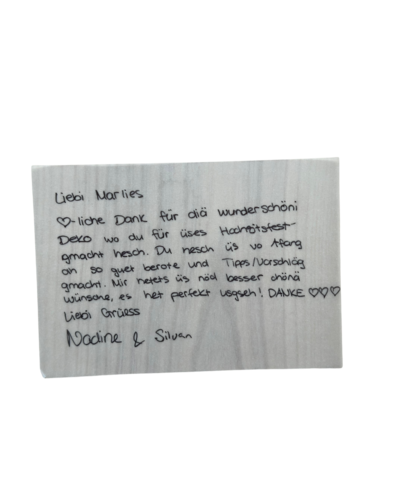 Liebi Marlies
♡-liche Dank für diä wunderschöni
Deko wo du für üses Hochzitsfest
gmacht hesch. Du hesch üs vo Afang
an so guet berote und Tipps/Vorschläg
gmacht. Mir hetets üs nöd besser chönä
wünsche, es het perfekt usgseh! DANKE ♡♡♡
Liebi Grüess
Nadine & Silvan